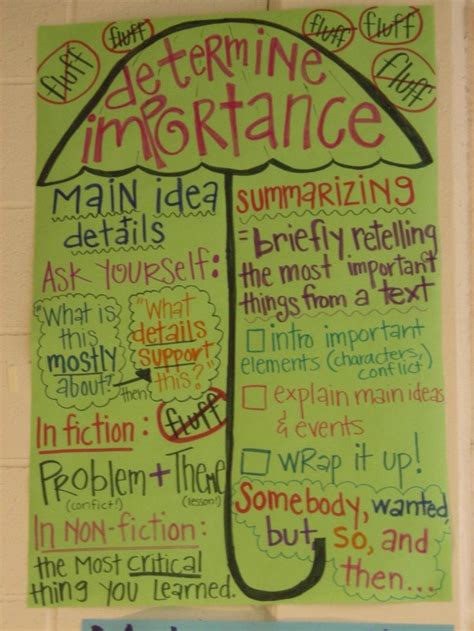 fluff fluff fluff fluff fluff
determine
importance
Main idea
details
Ask Yourself:
"What is
this
mostly
about?"
then
"What
details
support
this?"
In fiction: fluff
Problem + Theme
(conflict!) (lesson!)
In Non-fiction:
the Most Critical
thing you Learned.
summarizing
= briefly retelling
the most important
things from a text
intro important
elements (characters,
conflict)
explain main ideas
& events
wrap it up!
Somebody, wanted,
but, so, and
then...